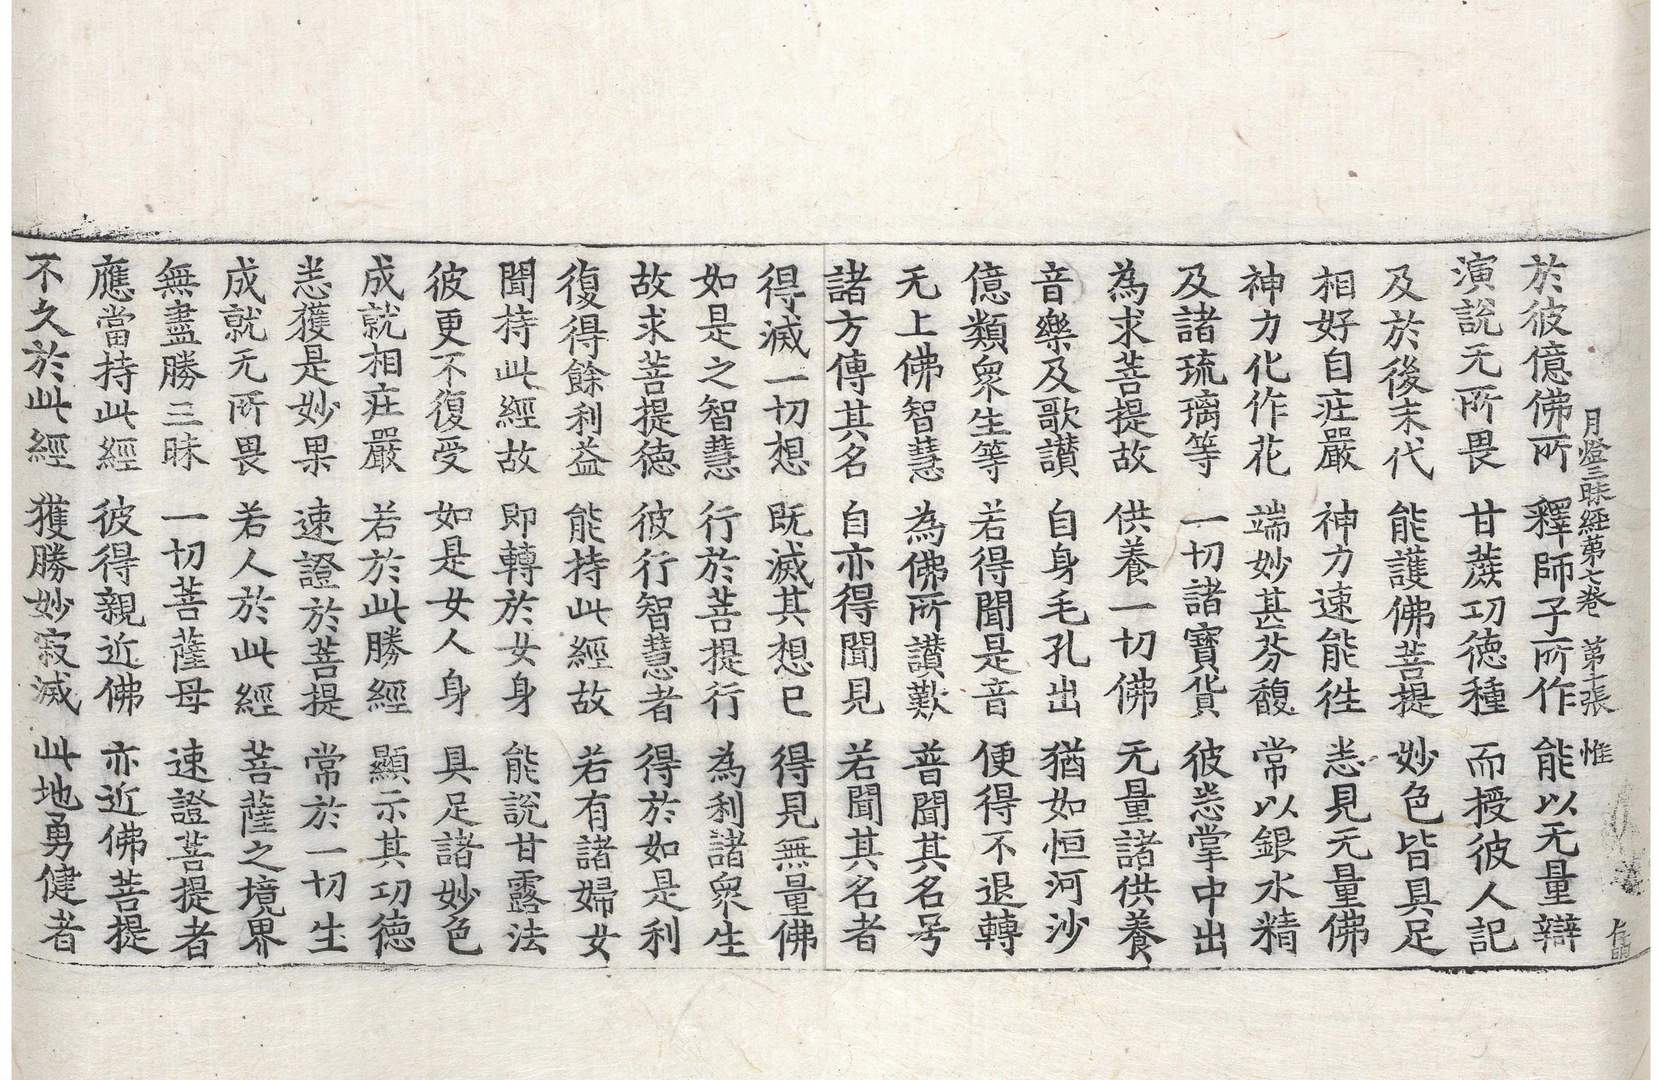 月燈三昧經第七卷 第十張 惟
於彼億佛所 釋師子所作 能以无量辯
演說无所畏 甘蔗功德種 而授彼人記
及於後末代 能護佛菩提 妙色皆具足
相好自庄嚴 神力速能徃 悉見无量佛
神力化作花 端妙甚芬馥 常以銀水精
及諸琉璃等 一切諸寶貨 彼悉掌中出
為求菩提故 供養一切佛 无量諸供養
音樂及歌讃 自身毛孔出 猶如恒河沙
億類衆生等 若得聞是音 便得不退轉
无上佛智慧 為佛所讃歎 普聞其名号
諸方傳其名 自亦得聞見 若聞其名者
得滅一切想 既滅其想已 得見無量佛
如是之智慧 行於菩提行 為利諸衆生
故求菩提德 彼行智慧者 得於如是利
復得餘利益 能持此經故 若有諸婦女
聞持此經故 即轉於女身 能說甘露法
彼更不復受 如是女人身 具足諸妙色
成就相庄嚴 若於此勝經 顯示其功德
悉獲是妙果 速證於菩提 常於一切生
成就无所畏 若人於此經 菩薩之境界
無盡勝三昧 一切菩薩母 速證菩提者
應當持此經 彼得親近佛 亦近佛菩提
不久於此經 獲勝妙寂滅 此地勇健者